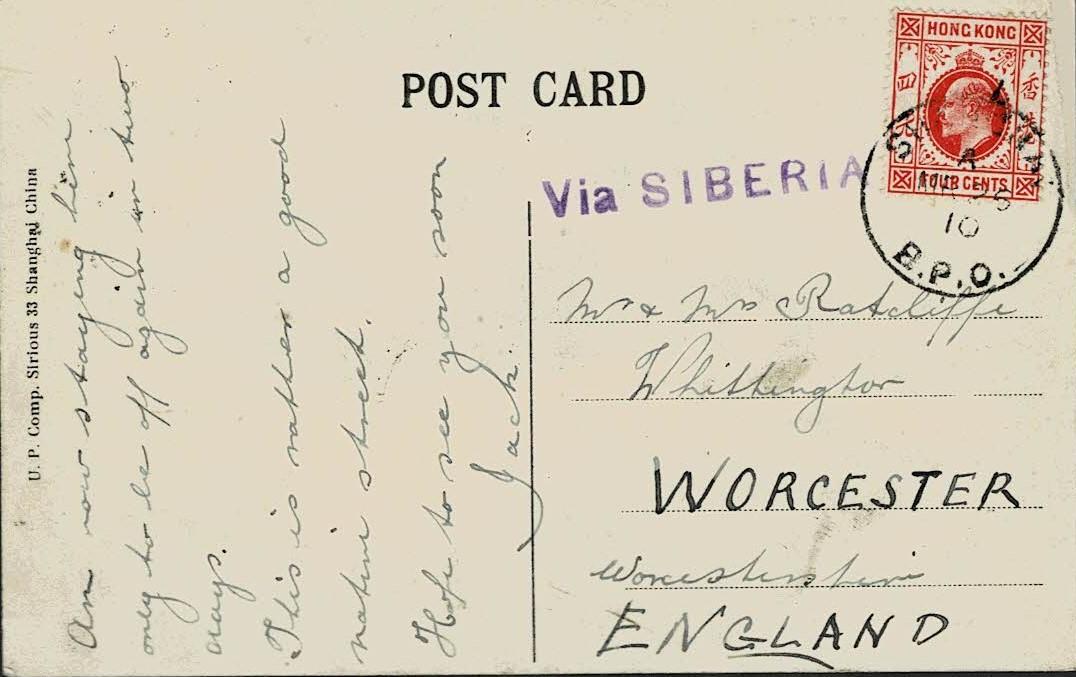 U. P. Comp. Sirious 33 Shanghai China
Am now staying here
only to be off again in two
days.
This is rather a good
native street.
Hope to see you soon
Jack.
POST CARD
HONG KONG
四
香
FOUR CENTS
A
10
B.P.O.
Via SIBERIA
Mr & Mrs Ratcliffe
Whittington
WORCESTER
Worcestershire
ENGLAND